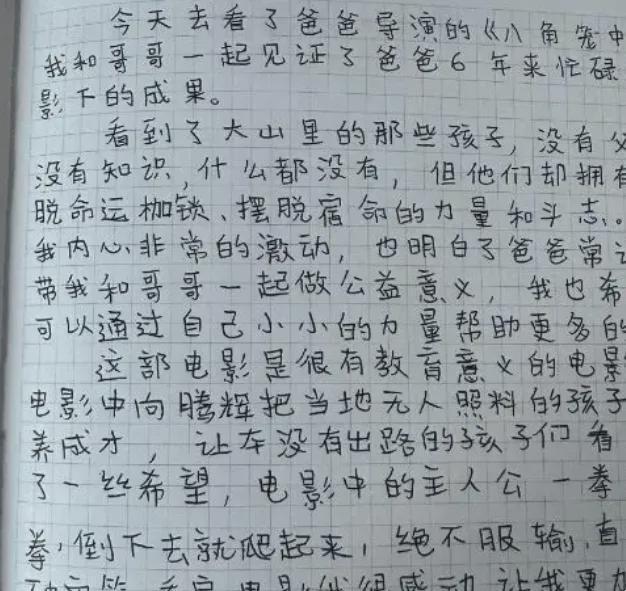 今天去看了爸爸导演的《八角笼中
我和哥哥一起见证了爸爸6年来忙碌
影下的成果。
看到了大山里的那些孩子,没有父
没有知识,什么都没有,但他们却拥有
脱命运枷锁、摆脱宿命的力量和斗志。
我内心非常的激动,也明白了爸爸常
带我和哥哥一起做公益意义,我也希
可以通过自己小小的力量帮助更多的
这部电影是很有教育意义的电影
电影中向腾辉把当地无人照料的孩子
养成才,让本没有出路的孩子们看
了一丝希望,电影中的主人公一拳
拳,倒下去就爬起来,绝不服输,直
电影 很感动 让我更加